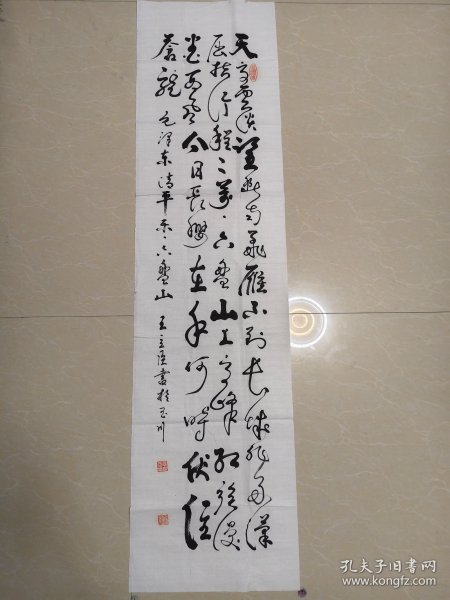 天高云淡望断南飞雁不到长城非好汉
屈指行程二万六盘山上高峰红旗漫
卷西风今日长缨在手何时缚住
苍龙 毛泽东清平乐六盘山 王立
孔夫子旧书网
www.kongfz.com